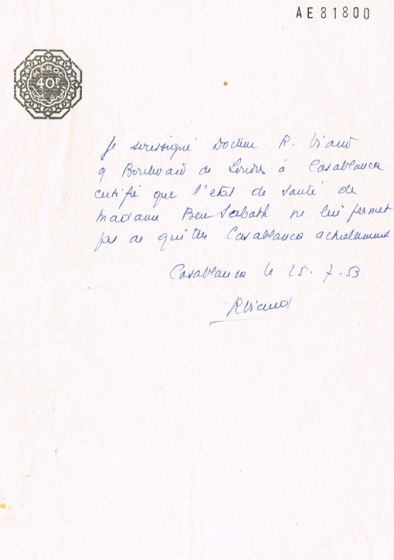 AE81800
MAROC
40F
Je soussigné Docteur R. Viaud
9 Boulevard de Londres à Casablanca
certifie que l'état de santé de
Madame Ben Sebbath ne lui permet
pas de quitter Casablanca actuellement
Casablanca le 25.7.53
RViaud